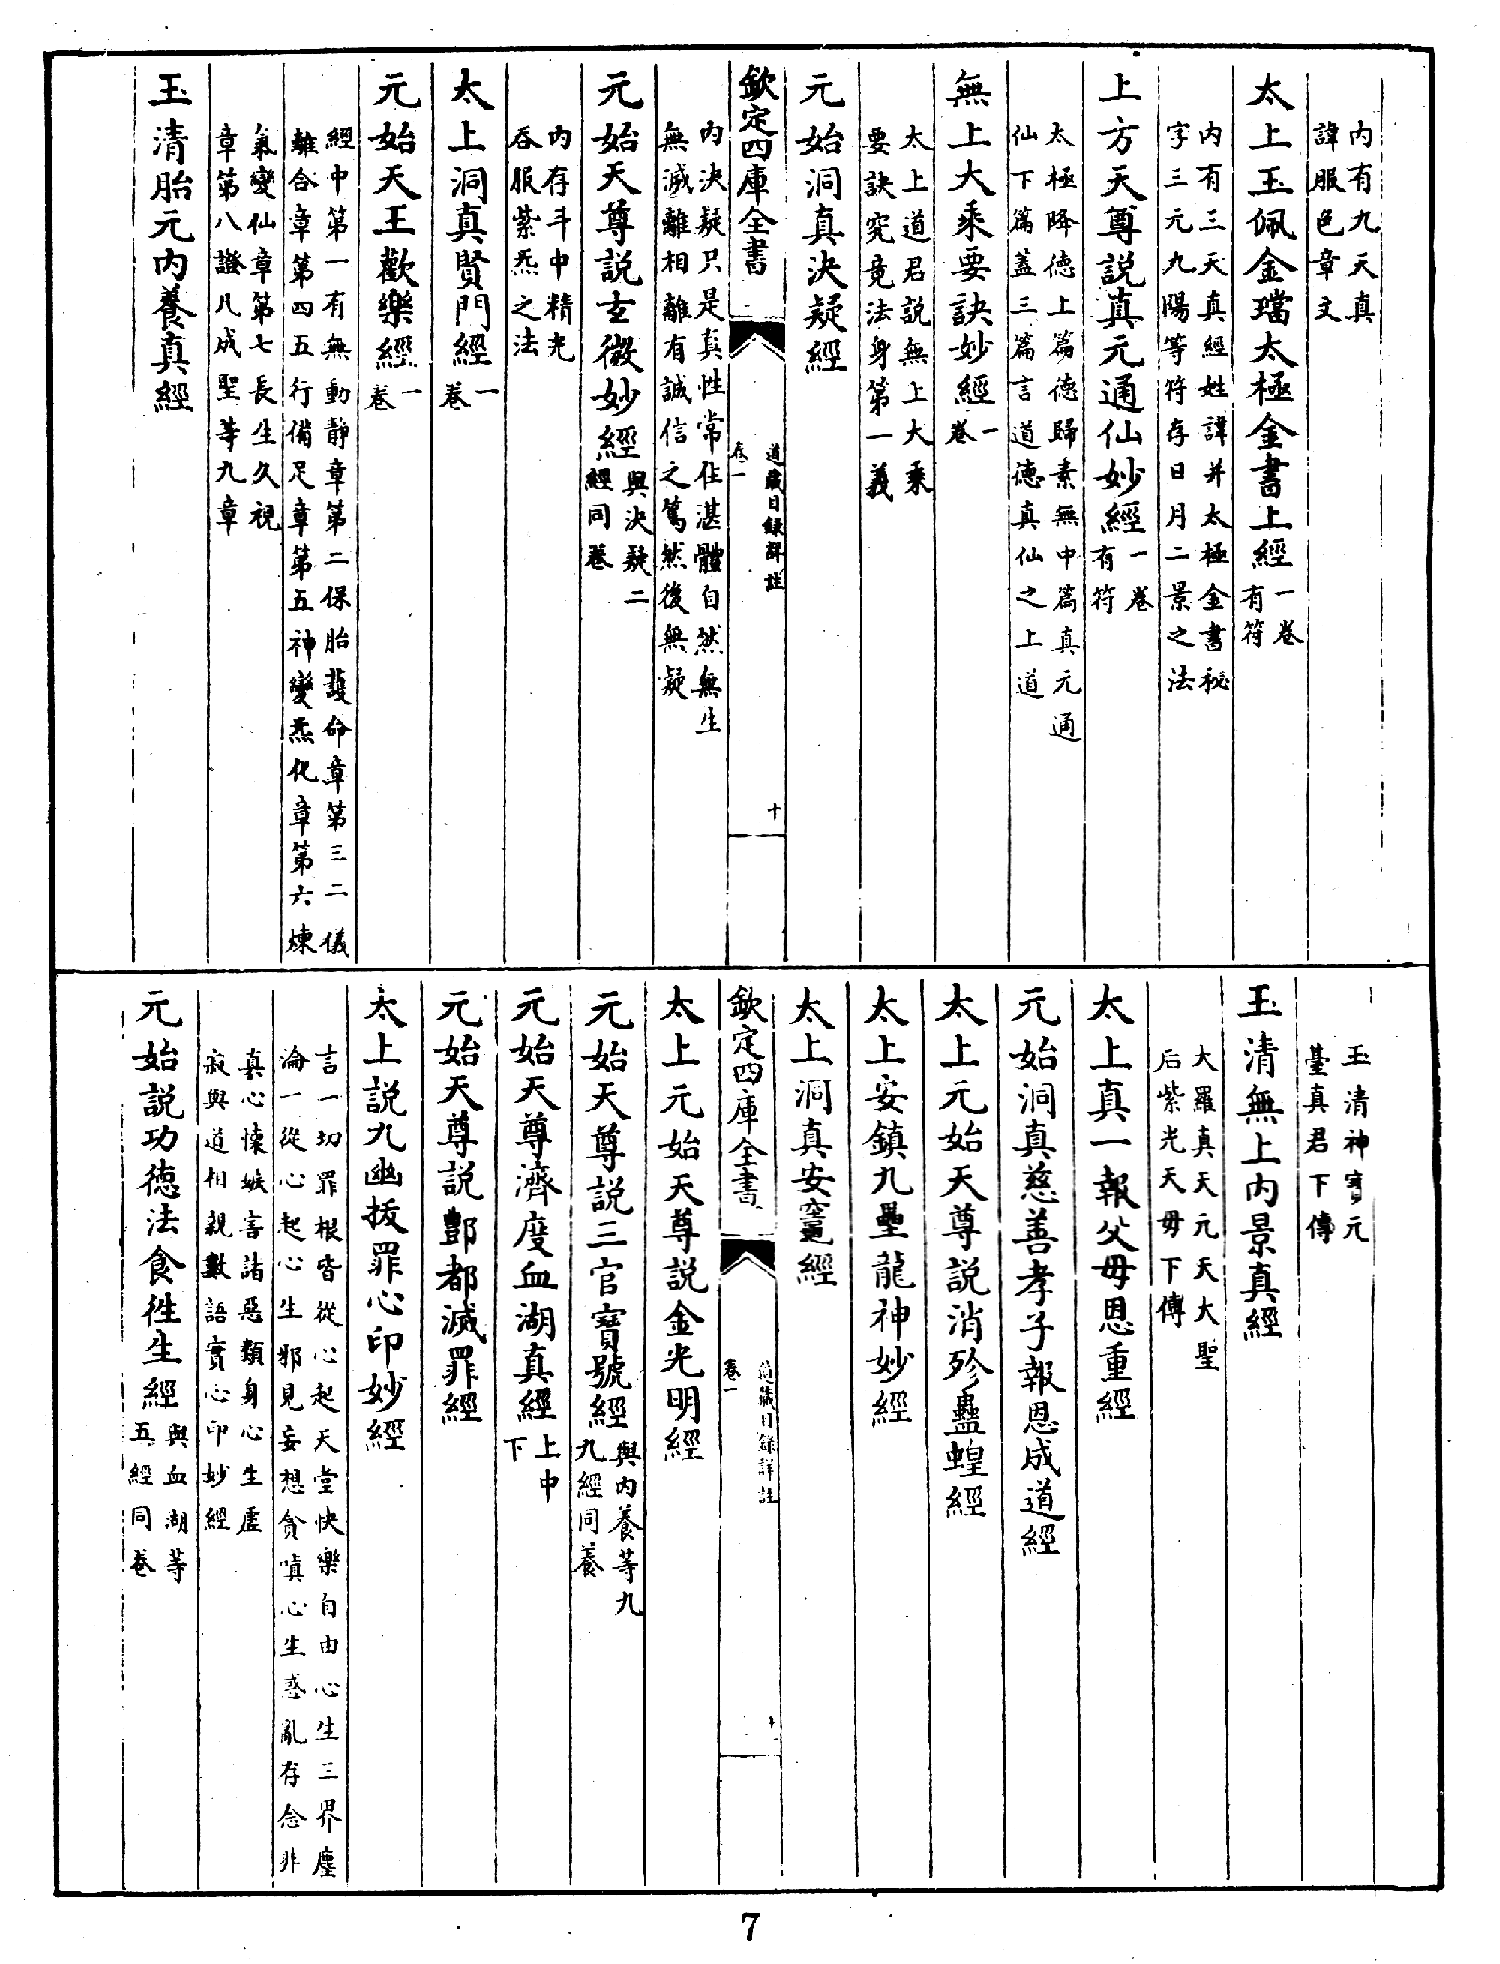 内有九天真
諱服色章文
太上玉佩金璫太極金書上經一卷有符
内有三天真經姓諱并太極金書秘
字三元九陽等符存日月二景之法
上方天尊説真元通仙妙經一卷有符
太極降徳上篇徳歸素無中篇真元通
仙下篇蓋三篇言道徳真仙之上道
無上大乘要訣妙經一卷
太上道君説無上大乘
要訣究竟法身第一義
元始洞真決疑經
欽定四庫全書
道藏目録詳註
卷一
十
内決疑只是真性常住湛體自然無生
無滅離相離有誠信之篤然後無疑
元始天尊説玄微妙經與決疑二經同卷
内存斗中精光
吞服紫炁之法
太上洞真賢門經一卷
元始天王歡樂經一卷
經中第一有無動静章第二保胎護命章第三二儀
離合章第四五行備足章第五神變炁化章第六煉
氣變仙章第七長生久視
章第八證凡成聖等九章
玉清胎元内養真經
玉清神寳元
臺真君下傳
玉清無上内景真經
大羅真天元天大聖
后紫光天母下傳
太上真一報父母恩重經
元始洞真慈善孝子報恩成道經
太上元始天尊説消殄蟲蝗經
太上安鎮九壘龍神妙經
太上洞真安竈經
欽定四庫全書
道藏目録詳註
卷一
太上元始天尊説金光明經
元始天尊説三官寳號經與内養等九九經同養
元始天尊濟度血湖真經上中下
元始天尊説酆都滅罪經
太上説九幽拔罪心印妙經
言一切罪根皆從心起天堂快樂自由心生三界塵
淪一從心起心生邪見妄想貪嗔心生惑亂存念非
真心懐嫉害諸惡類身心生虚
寂與道相親數語實心印妙經
元始説功徳法食徃生經與血湖等五經同卷
7